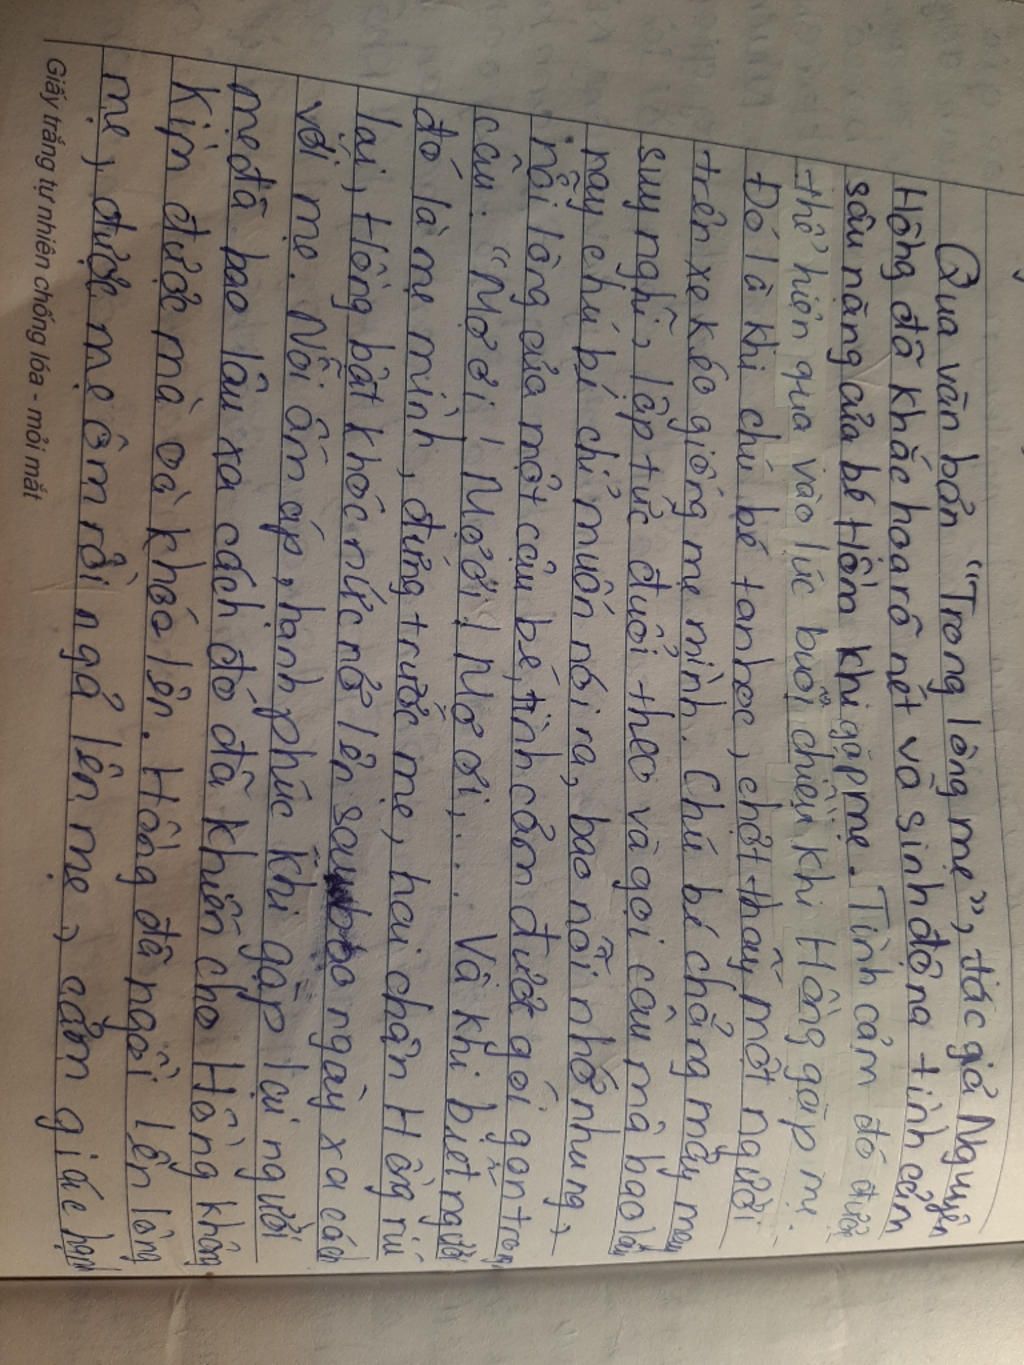 Qua văn bản "Trong lòng mẹ", tác giả Nguyên
Hồng đã khắc hoạ rõ nét và sinh động tình cảm
sâu nặng của bé Hồng khi gặp mẹ. Tình cảm đó được
thể hiện qua vào lúc buổi chiều khi Hồng gặp mẹ.
Đó là khi chú bé tan học, chợt thấy một người
trên xe kéo giống mẹ mình. Chú bé chẳng mảy may
suy nghĩ, lập tức đuổi theo và gọi câu mà bao lâu
nay chú bé chỉ muốn nói ra, bao nỗi nhớ nhung,
nỗi lòng của một cậu bé, tình cảm được gói gọn trong
câu: "Mợ ơi! Mợ ơi! Mợ ơi,... Và khi biết người
đó là mẹ mình, đứng trước mẹ, hai chân Hồng ríu
lại, Hồng bật khóc nức nở lên sau bao ngày xa cách
với mẹ. Nỗi ấm áp, hạnh phúc khi gặp lại người
mẹ đã bao lâu xa cách đó đã khiến cho Hồng không
kịn được mà oà khóc lên. Hồng đã ngồi lên lòng
mẹ, được mẹ ôm rồi ngả lên mẹ, cảm giác hạnh
Giấy trắng tự nhiên chống lóa - mỏi mắt